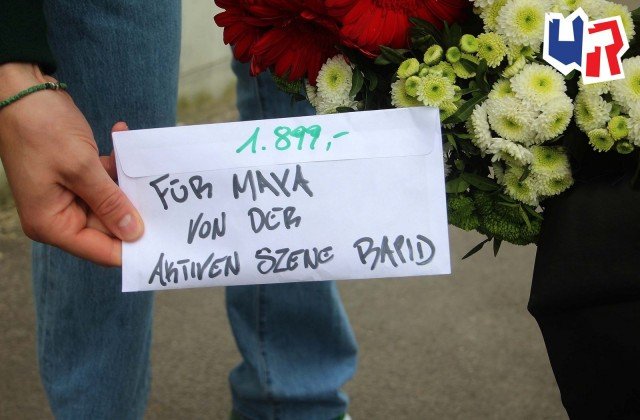 UR
1.899,-
FÜR MAYA
VON DER
AKTIVEN SZENE RAPID